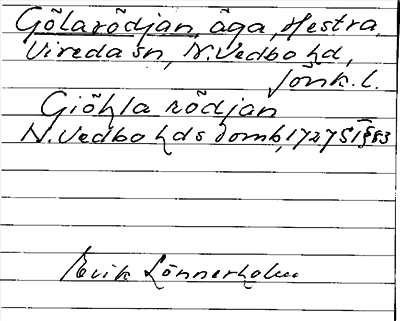 Gölarödjan, äga, Hestra,
Vireda sn, N. Vedbo hd,
Jönk. l.
Giöhla rödjan
N. Vedbo hds domb, 1727 S1 § 83
Erik Lönnerholm